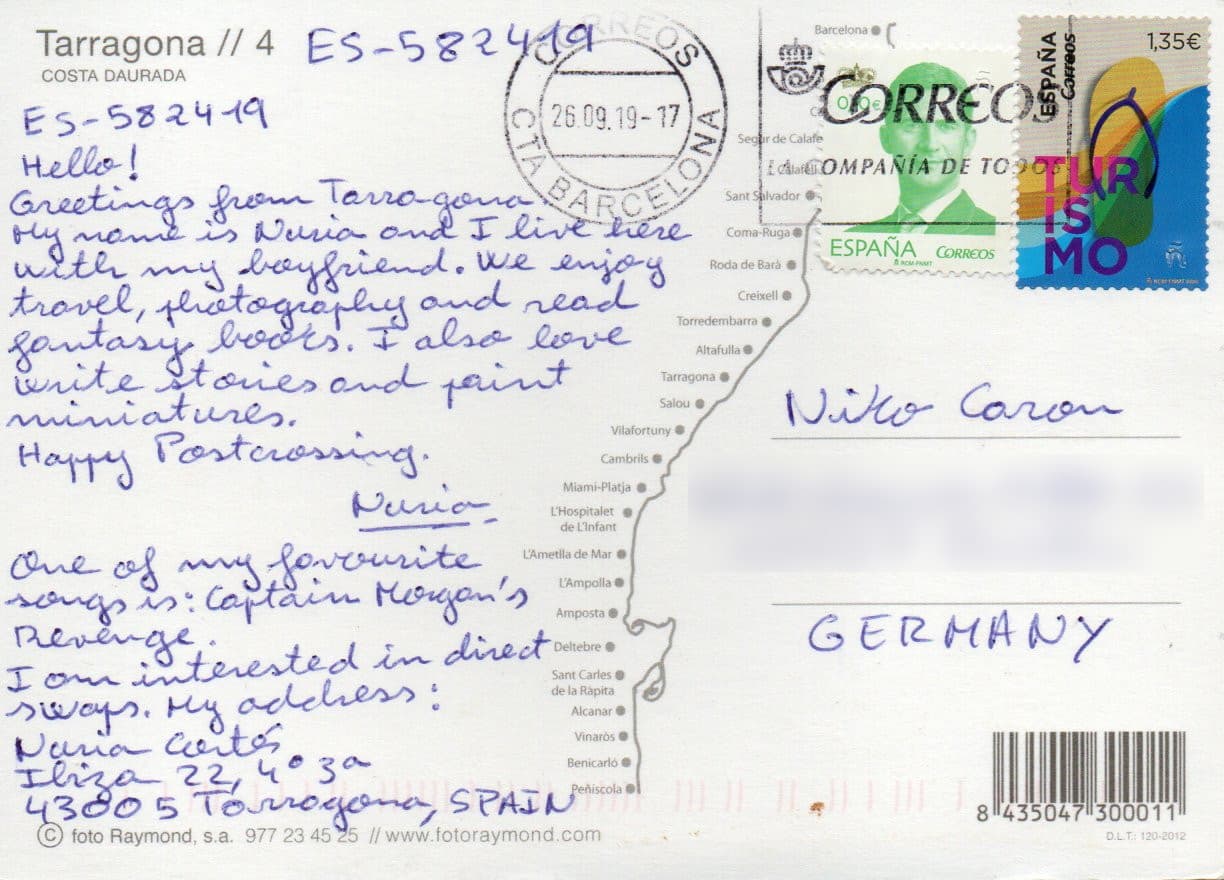 Tarragona // 4
COSTA DAURADA
ES-582419
ES-582419
Hello!
Greetings from Tarragona
My name is Nuria and I live here
with my boyfriend. We enjoy
travel, photography and read
fantasy books. I also love
write stories and paint
miniatures.
Happy Postcrossing.
Nuria
One of my favourite
songs is: Captain Morgan's
Revenge.
I am interested in direct
swaps. My address:
Nuria Cortés
Ibiza 22, 4º 3a
43005 Tarragona, SPAIN
© foto Raymond, s.a. 977 23 45 25 // www.fotoraymond.com
CORREOS
26.09.19-17
CTA BARCELONA
CORREOS
LA COMPAÑÍA DE TODOS
ESPAÑA
CORREOS
RCM-FNMT
ESPAÑA
Correos
1,35€
TUR
IS
MO
Barcelona
Segur de Calafell
Calafell
Sant Salvador
Coma-Ruga
Roda de Barà
Creixell
Torredembarra
Altafulla
Tarragona
Salou
Vilafortuny
Cambrils
Miami-Platja
L'Hospitalet
de L'Infant
L'Ametlla de Mar
L'Ampolla
Amposta
Deltebre
Sant Carles
de la Ràpita
Alcanar
Vinaròs
Benicarló
Peñíscola
Niko Caron
GERMANY
8 435047 300011
D.L.T.: 120-2012